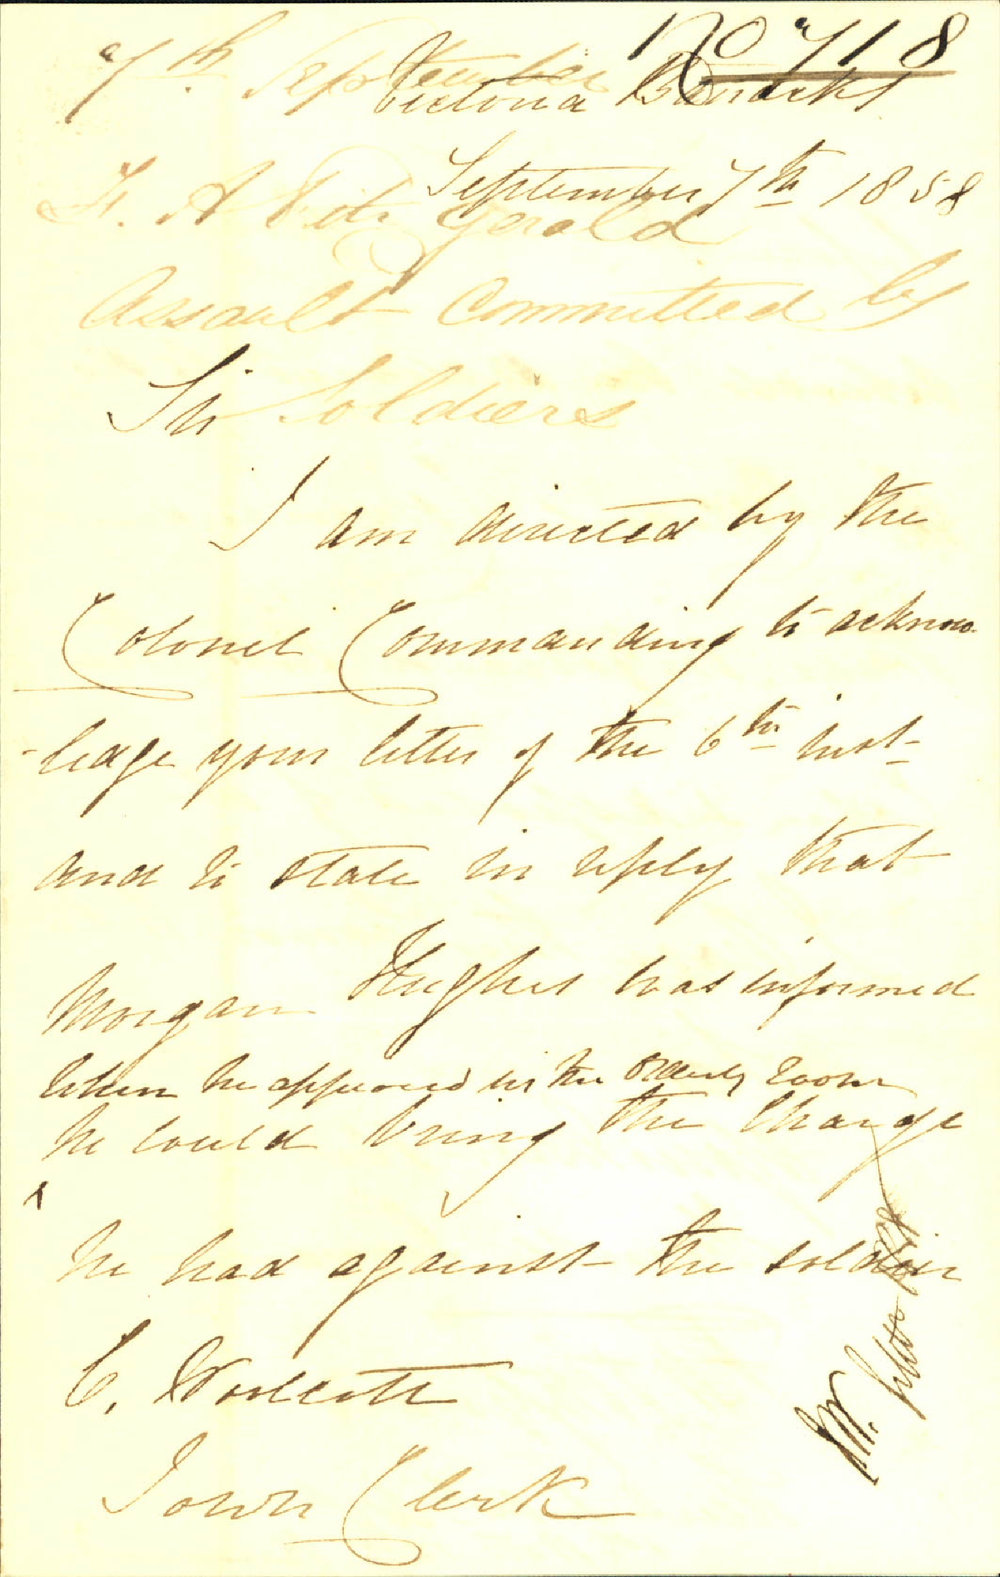 No 718
7th September
Victoria Barracks
September 7th 1858
F. A. Fitz Gerald
Assault Committed by
Soldiers
Sir
I am directed by the
Colonel Commanding to acknow-
-ledge your letter of the 6th inst-
and to state in reply that
Morgan Hughes was informed
when he appeared in the Orderly Room
he could bring the charge
he had against the soldier
C.
Town Clerk